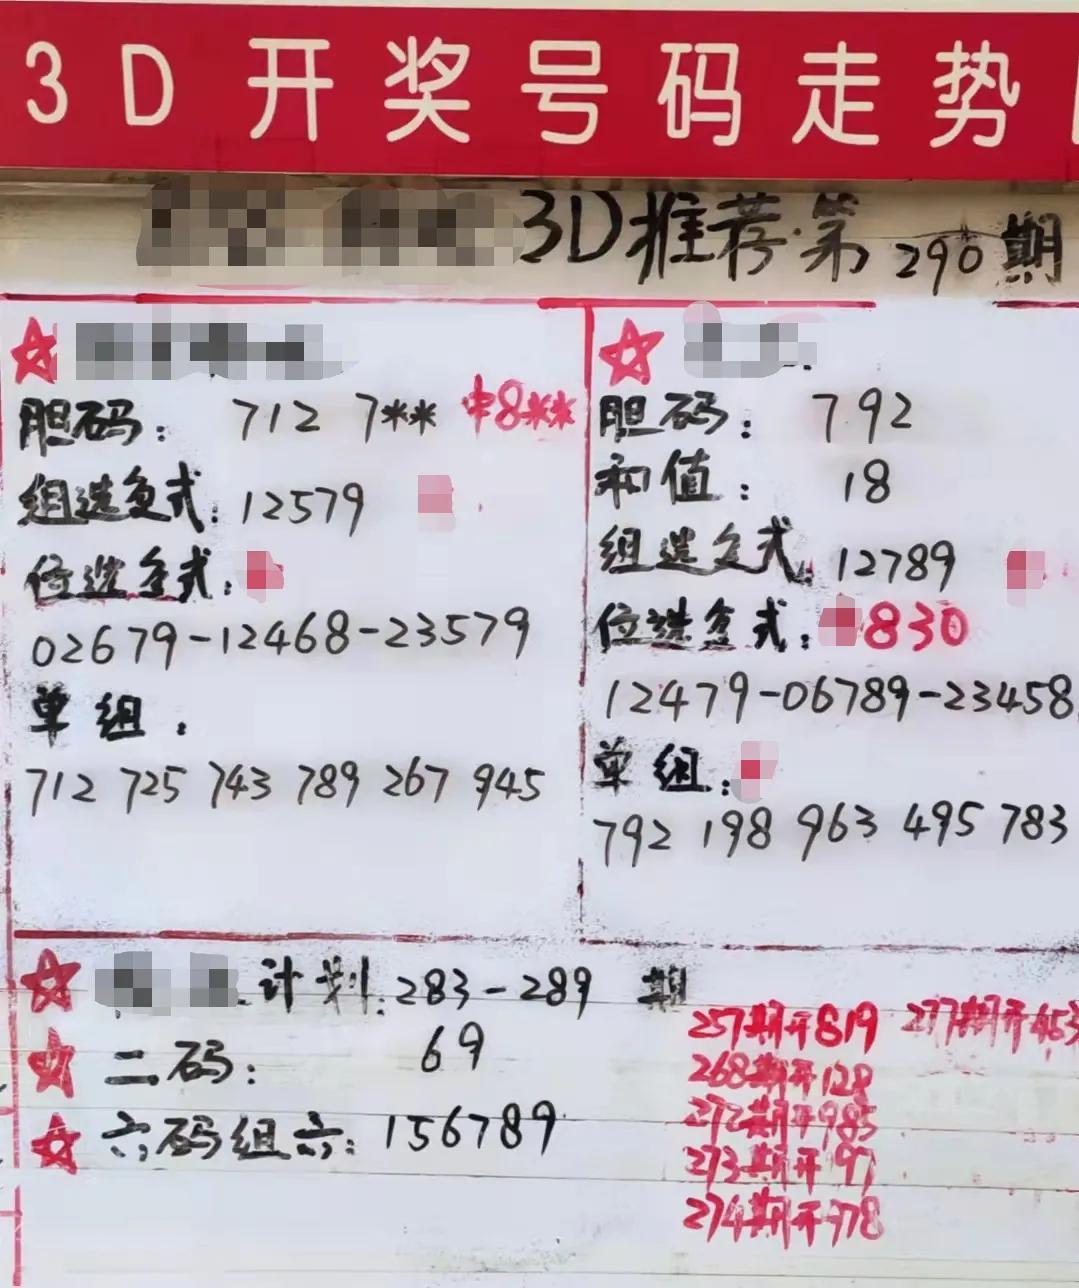 3D开奖号码走势
3D推荐·第290期
胆码: 712 7** 中8**
组选复式: 12579
位选复式:
02679-12468-23579
单组:
712 725 743 789 267 945
胆码: 792
和值: 18
组选复式: 12789
位选复式: 830
12479-06789-23458
单组:
792 198 963 495 783
计划: 283-289 期
二码: 69
六码组六: 156789
257期开819 277期开453
268期开128
272期开985
273期开197
274期开778